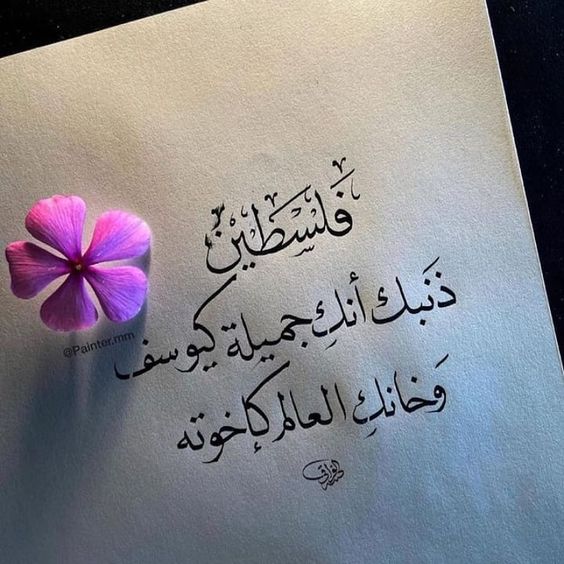 فَلَسْطِين
ذَنبك أنكِ جميلة كيوسف
وَخانكِ العالم كإخوته
@Painter.mm